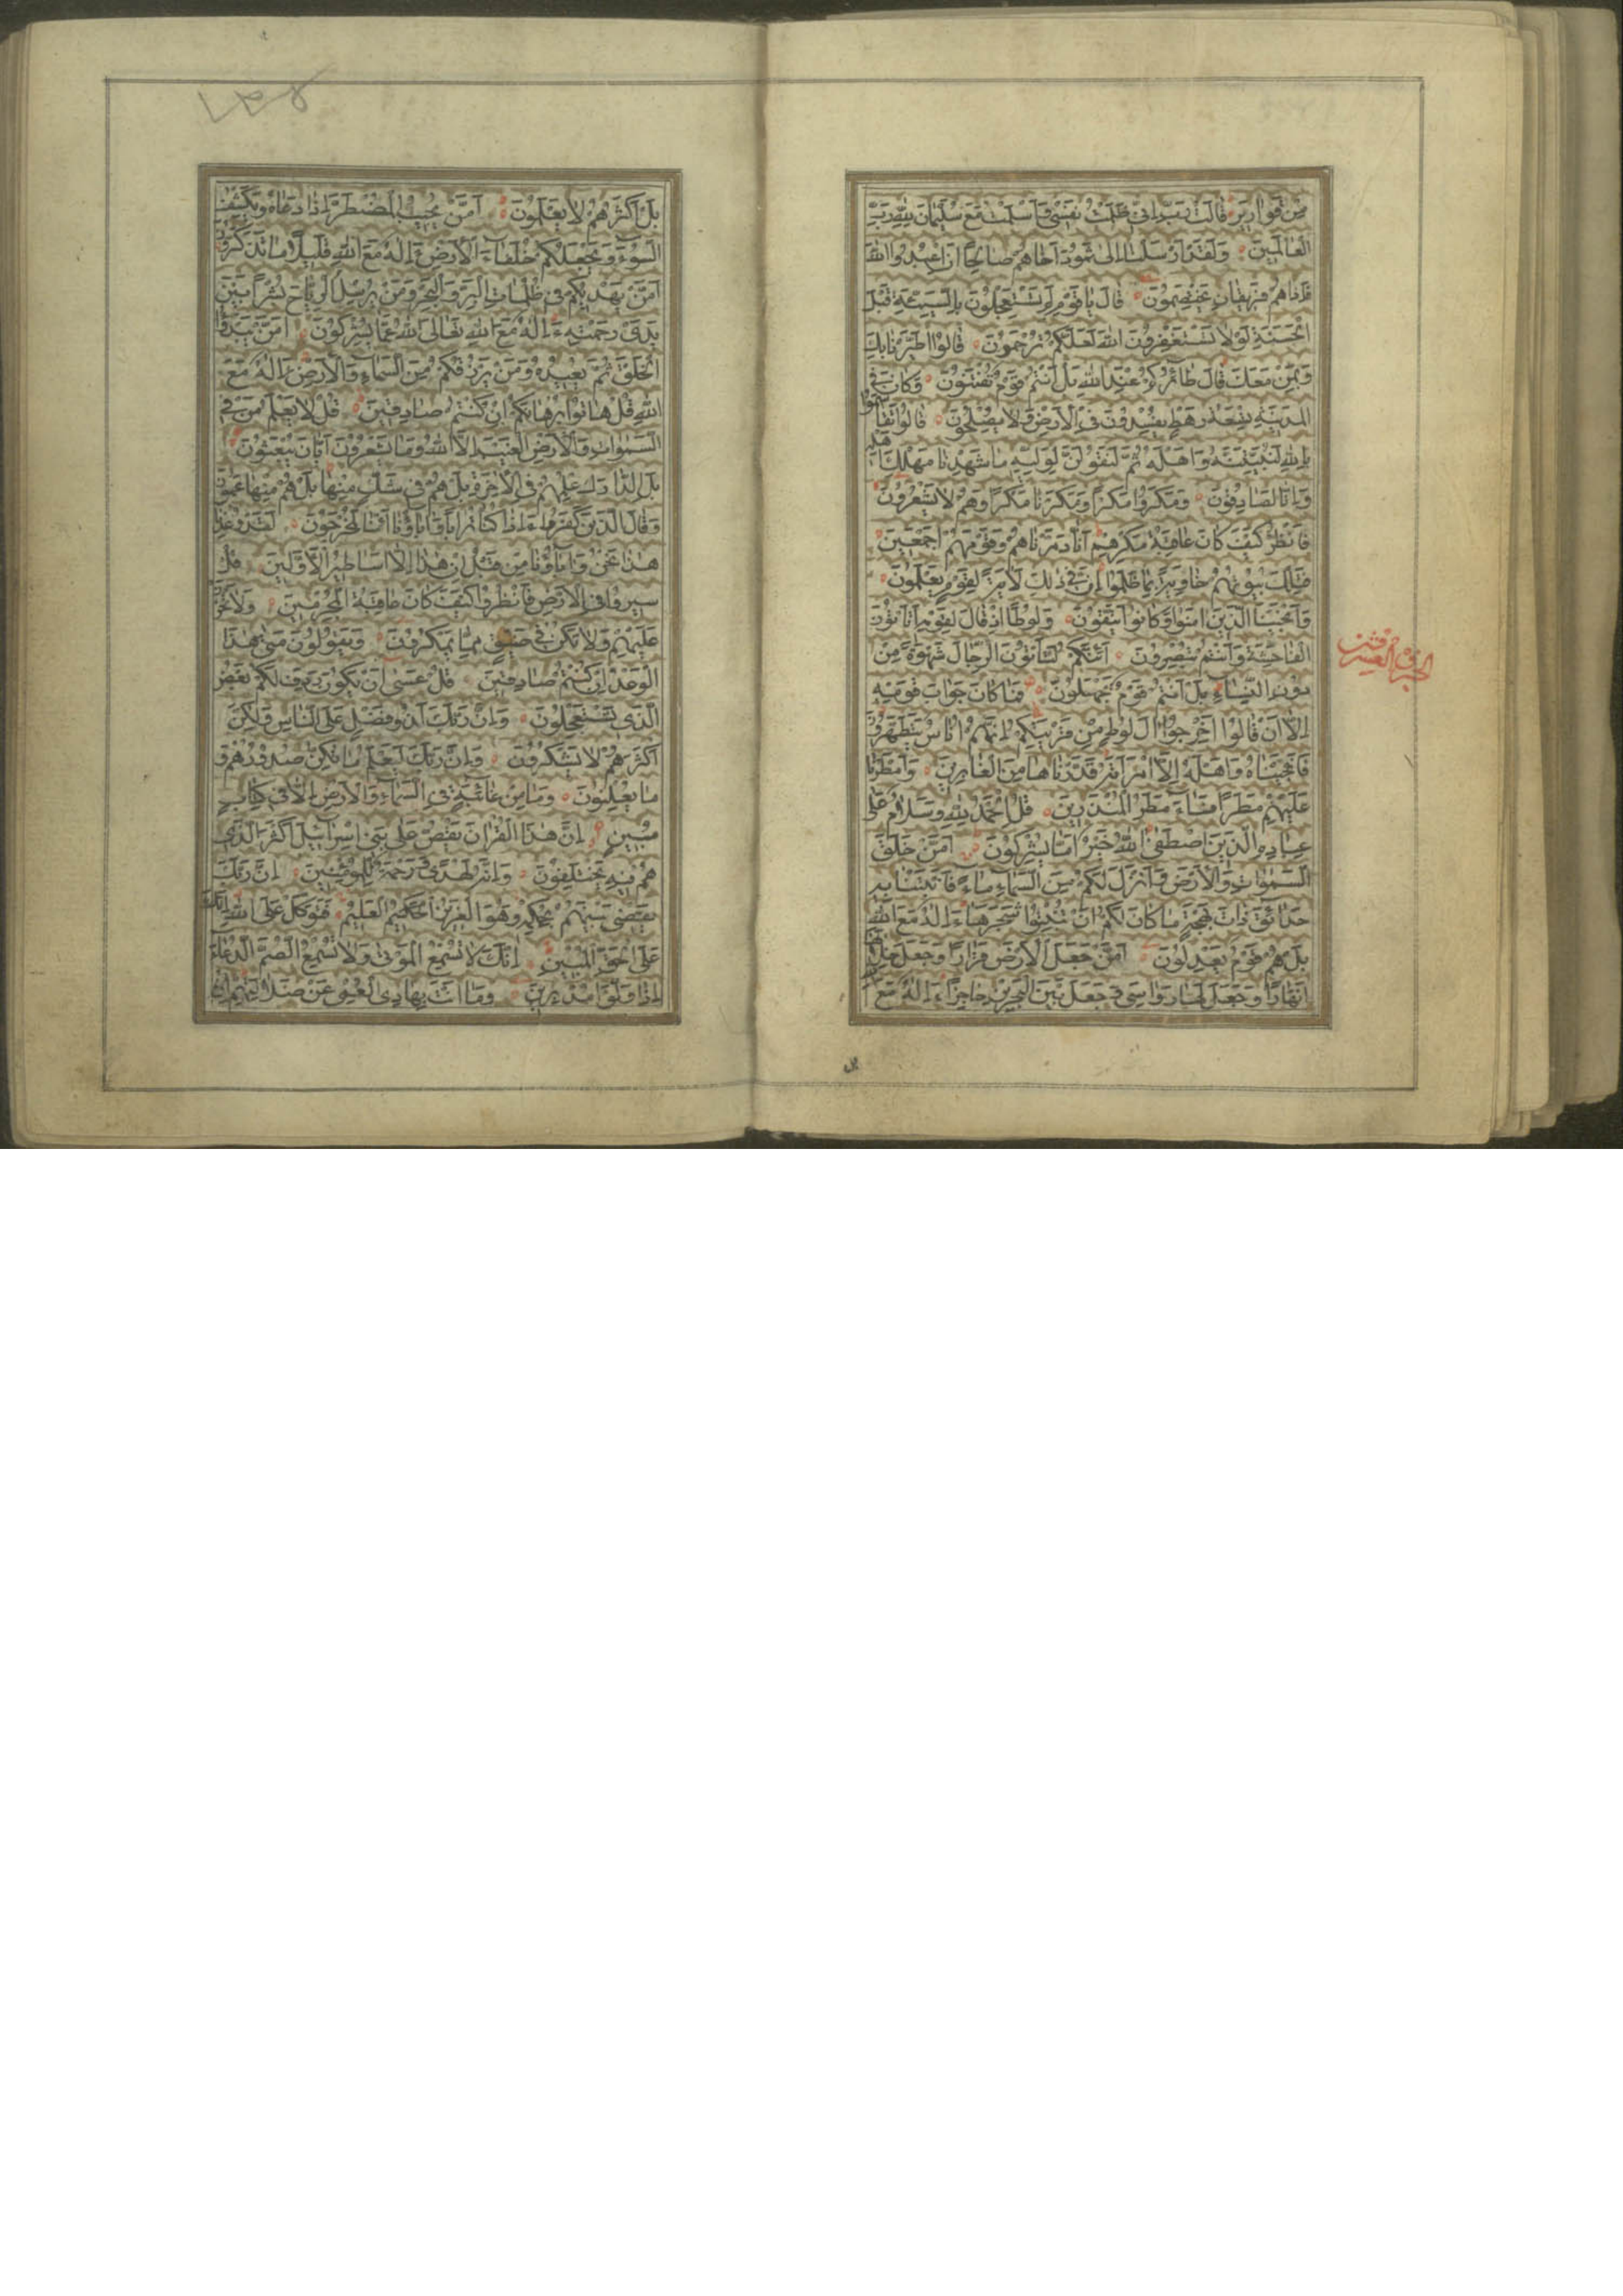 مِنْ قَوَارِيرَ قَالَتْ رَبِّ اِنِّي ظَلَمْتُ نَفْسِي وَاَسْلَمْتُ مَعَ سُلَيْمَانَ لِلّٰهِ رَبِّ
الْعَالَمِينَ وَلَقَدْ اَرْسَلْنَا اِلٰى ثَمُودَ اَخَاهُمْ صَالِحًا اَنِ اعْبُدُوا اللّٰهَ
فَاِذَا هُمْ فَرِيقَانِ يَخْتَصِمُونَ قَالَ يَا قَوْمِ لِمَ تَسْتَعْجِلُونَ بِالسَّيِّئَةِ قَبْلَ
الْحَسَنَةِ لَوْلَا تَسْتَغْفِرُونَ اللّٰهَ لَعَلَّكُمْ تُرْحَمُونَ قَالُوا اطَّيَّرْنَا بِكَ
وَبِمَنْ مَعَكَ قَالَ طَائِرُكُمْ عِنْدَ اللّٰهِ بَلْ اَنْتُمْ قَوْمٌ تُفْتَنُونَ وَكَانَ فِي
الْمَدِينَةِ تِسْعَةُ رَهْطٍ يُفْسِدُونَ فِي الْاَرْضِ وَلَا يُصْلِحُونَ قَالُوا تَقَاسَمُوا
بِاللّٰهِ لَنُبَيِّتَنَّهُ وَاَهْلَهُ ثُمَّ لَنَقُولَنَّ لِوَلِيِّهِ مَا شَهِدْنَا مَهْلِكَ اَهْلِهِ
وَاِنَّا لَصَادِقُونَ وَمَكَرُوا مَكْرًا وَمَكَرْنَا مَكْرًا وَهُمْ لَا يَشْعُرُونَ
فَانْظُرْ كَيْفَ كَانَ عَاقِبَةُ مَكْرِهِمْ اَنَّا دَمَّرْنَاهُمْ وَقَوْمَهُمْ اَجْمَعِينَ
فَتِلْكَ بُيُوتُهُمْ خَاوِيَةً بِمَا ظَلَمُوا اِنَّ فِي ذٰلِكَ لَاٰيَةً لِقَوْمٍ يَعْلَمُونَ
وَاَنْجَيْنَا الَّذِينَ اٰمَنُوا وَكَانُوا يَتَّقُونَ وَلُوطًا اِذْ قَالَ لِقَوْمِهِ اَتَأْتُونَ
الْفَاحِشَةَ وَاَنْتُمْ تُبْصِرُونَ اَئِنَّكُمْ لَتَأْتُونَ الرِّجَالَ شَهْوَةً مِنْ
دُونِ النِّسَاءِ بَلْ اَنْتُمْ قَوْمٌ تَجْهَلُونَ فَمَا كَانَ جَوَابَ قَوْمِهِ
اِلَّا اَنْ قَالُوا اَخْرِجُوا اٰلَ لُوطٍ مِنْ قَرْيَتِكُمْ اِنَّهُمْ اُنَاسٌ يَتَطَهَّرُونَ
فَاَنْجَيْنَاهُ وَاَهْلَهُ اِلَّا امْرَاَتَهُ قَدَّرْنَاهَا مِنَ الْغَابِرِينَ وَاَمْطَرْنَا
عَلَيْهِمْ مَطَرًا فَسَاءَ مَطَرُ الْمُنْذَرِينَ قُلِ الْحَمْدُ لِلّٰهِ وَسَلَامٌ عَلٰى
عِبَادِهِ الَّذِينَ اصْطَفٰى اللّٰهُ خَيْرٌ اَمَّا يُشْرِكُونَ اَمَّنْ خَلَقَ
السَّمٰوَاتِ وَالْاَرْضَ وَاَنْزَلَ لَكُمْ مِنَ السَّمَاءِ مَاءً فَاَنْبَتْنَا بِهِ
حَدَائِقَ ذَاتَ بَهْجَةٍ مَا كَانَ لَكُمْ اَنْ تُنْبِتُوا شَجَرَهَا ءَاِلٰهٌ مَعَ اللّٰهِ
بَلْ هُمْ قَوْمٌ يَعْدِلُونَ اَمَّنْ جَعَلَ الْاَرْضَ قَرَارًا وَجَعَلَ خِلَالَهَا
اَنْهَارًا وَجَعَلَ لَهَا رَوَاسِيَ وَجَعَلَ بَيْنَ الْبَحْرَيْنِ حَاجِزًا ءَاِلٰهٌ مَعَ
بَلْ اَكْثَرُهُمْ لَا يَعْلَمُونَ اَمَّنْ يُجِيبُ الْمُضْطَرَّ اِذَا دَعَاهُ وَيَكْشِفُ
السُّوءَ وَيَجْعَلُكُمْ خُلَفَاءَ الْاَرْضِ ءَاِلٰهٌ مَعَ اللّٰهِ قَلِيلًا مَا تَذَكَّرُونَ
اَمَّنْ يَهْدِيكُمْ فِي ظُلُمَاتِ الْبَرِّ وَالْبَحْرِ وَمَنْ يُرْسِلُ الرِّيَاحَ بُشْرًا بَيْنَ
يَدَيْ رَحْمَتِهِ ءَاِلٰهٌ مَعَ اللّٰهِ تَعَالَى اللّٰهُ عَمَّا يُشْرِكُونَ اَمَّنْ يَبْدَؤُا
الْخَلْقَ ثُمَّ يُعِيدُهُ وَمَنْ يَرْزُقُكُمْ مِنَ السَّمَاءِ وَالْاَرْضِ ءَاِلٰهٌ مَعَ
اللّٰهِ قُلْ هَاتُوا بُرْهَانَكُمْ اِنْ كُنْتُمْ صَادِقِينَ قُلْ لَا يَعْلَمُ مَنْ فِي
السَّمٰوَاتِ وَالْاَرْضِ الْغَيْبَ اِلَّا اللّٰهُ وَمَا يَشْعُرُونَ اَيَّانَ يُبْعَثُونَ
بَلِ ادَّارَكَ عِلْمُهُمْ فِي الْاٰخِرَةِ بَلْ هُمْ فِي شَكٍّ مِنْهَا بَلْ هُمْ مِنْهَا عَمُونَ
وَقَالَ الَّذِينَ كَفَرُوا ءَاِذَا كُنَّا تُرَابًا وَاٰبَاؤُنَا اَئِنَّا لَمُخْرَجُونَ لَقَدْ وُعِدْنَا
هٰذَا نَحْنُ وَاٰبَاؤُنَا مِنْ قَبْلُ اِنْ هٰذَا اِلَّا اَسَاطِيرُ الْاَوَّلِينَ قُلْ
سِيرُوا فِي الْاَرْضِ فَانْظُرُوا كَيْفَ كَانَ عَاقِبَةُ الْمُجْرِمِينَ وَلَا تَحْزَنْ
عَلَيْهِمْ وَلَا تَكُنْ فِي ضَيْقٍ مِمَّا يَمْكُرُونَ وَيَقُولُونَ مَتٰى هٰذَا
الْوَعْدُ اِنْ كُنْتُمْ صَادِقِينَ قُلْ عَسٰى اَنْ يَكُونَ رَدِفَ لَكُمْ بَعْضُ
الَّذِي تَسْتَعْجِلُونَ وَاِنَّ رَبَّكَ لَذُو فَضْلٍ عَلَى النَّاسِ وَلٰكِنَّ
اَكْثَرَهُمْ لَا يَشْكُرُونَ وَاِنَّ رَبَّكَ لَيَعْلَمُ مَا تُكِنُّ صُدُورُهُمْ وَ
مَا يُعْلِنُونَ وَمَا مِنْ غَائِبَةٍ فِي السَّمَاءِ وَالْاَرْضِ اِلَّا فِي كِتَابٍ
مُبِينٍ اِنَّ هٰذَا الْقُرْاٰنَ يَقُصُّ عَلٰى بَنِي اِسْرَائِيلَ اَكْثَرَ الَّذِي
هُمْ فِيهِ يَخْتَلِفُونَ وَاِنَّهُ لَهُدًى وَرَحْمَةٌ لِلْمُؤْمِنِينَ اِنَّ رَبَّكَ
يَقْضِي بَيْنَهُمْ بِحُكْمِهِ وَهُوَ الْعَزِيزُ الْعَلِيمُ فَتَوَكَّلْ عَلَى اللّٰهِ اِنَّكَ
عَلَى الْحَقِّ الْمُبِينِ اِنَّكَ لَا تُسْمِعُ الْمَوْتٰى وَلَا تُسْمِعُ الصُّمَّ الدُّعَاءَ
اِذَا وَلَّوْا مُدْبِرِينَ وَمَا اَنْتَ بِهَادِي الْعُمْيِ عَنْ ضَلَالَتِهِمْ اِنْ